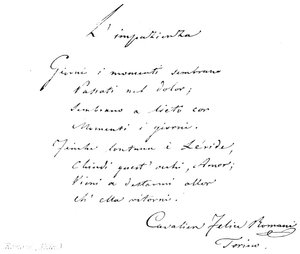 L'impazienza
Giorni i momenti sembrano
Passati nel dolor;
Sembrano a lieto cor
Momenti i giorni.
Finche lontana è Leride,
Chiudi quest' occhi, Amor;
Vieni a destarmi allor
Ch' ella ritorni.
Cavalier Felice Romani
Torino.